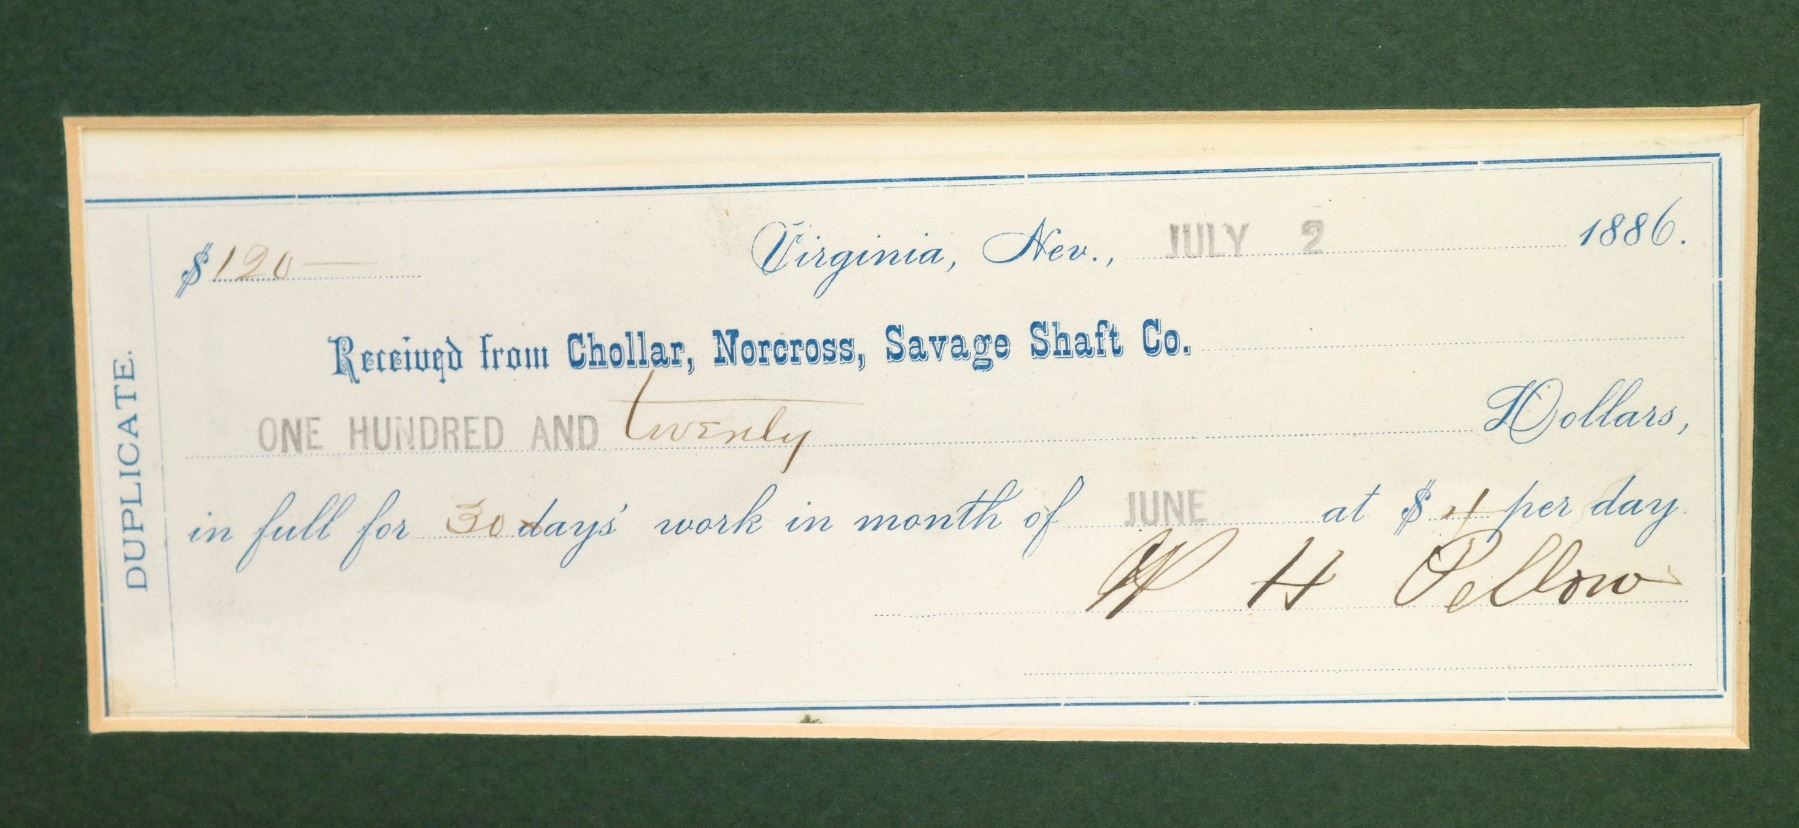 DUPLICATE.
$120 — Virginia, Nev., JULY 2 1886.
Received from Chollar, Norcross, Savage Shaft Co.
ONE HUNDRED AND twenty Dollars,
in full for 30 days' work in month of JUNE at $4 per day
W H Pellow